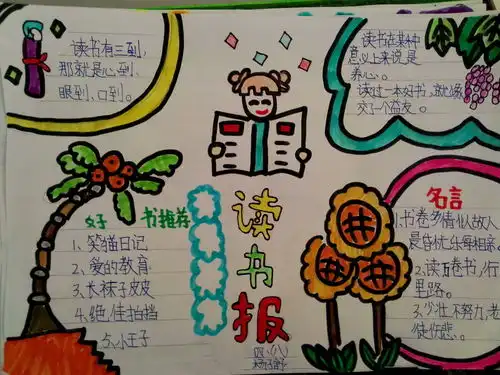 读书有三到,
那就是心到、
眼到、口到。
读书在某种
意义上来说是
养心。
读过一本好书,就像
交了一个益友。
好书推荐
1、笑猫日记
2、爱的教育
3、长袜子皮皮
4、绝佳拍挡
5、小王子
读书报
四、(八)
名言
1.书卷多情似故人
晨昏忧乐每相亲
2、读万卷书,行
里路。
3、少壮不努力,老
徒伤悲。